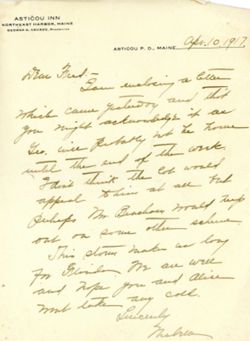 ASTICOU INN
NORTHEAST HARBOR, MAINE
GEORGE A. SAVAGE, PROPRIETOR
ASTICOU P. O., MAINE Apr. 10, 1917.
Dear Fred—
I am enclosing a letter
which came yesterday and that
you might acknowledge it as
Geo. will probably not be home
until the end of the week.
I don't think the Cot would
appeal to him at all but
perhaps Mr. would keep
out on some other scheme
This storm makes us long
for Florida. We are well
and hope you and Alice
wont take any cold.
Sincerely